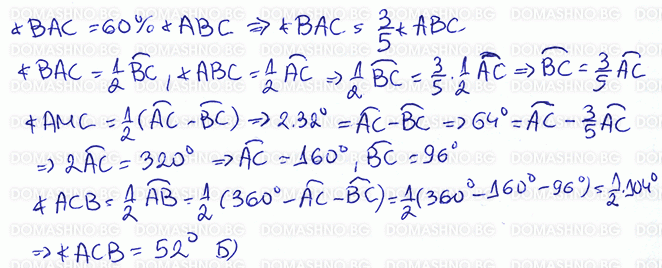 ∢BAC = 60% ∢ABC ⇒ ∢BAC = 3/5 ∢ABC
∢BAC = 1/2 B͡C, ∢ABC = 1/2 A͡C ⇒ 1/2 B͡C = 3/5 · 1/2 A͡C ⇒ B͡C = 3/5 A͡C
∢AMC = 1/2 (A͡C - B͡C) ⇒ 2.32° = A͡C - B͡C ⇒ 64° = A͡C - 3/5 A͡C
⇒ 2A͡C = 320° ⇒ A͡C = 160°, B͡C = 96°
∢ACB = 1/2 A͡B = 1/2 (360° - A͡C - B͡C) = 1/2 (360° - 160° - 96°) = 1/2 · 104°
⇒ ∢ACB = 52° Б)
DOMASHNO.BG